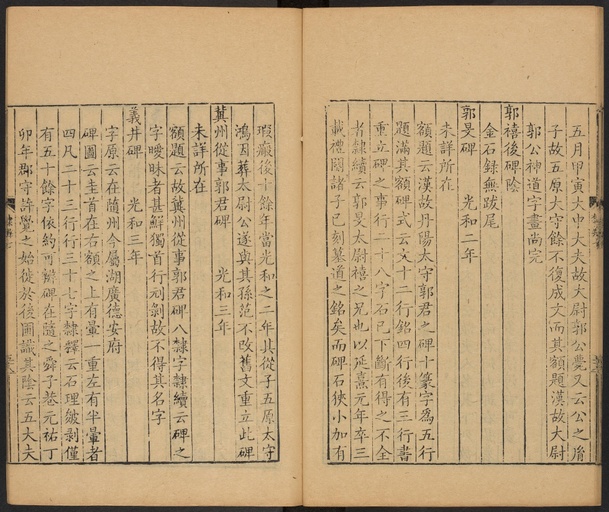 五月甲寅大中大夫故大尉郭公薨又云公之胤
子故五原大守餘不復成文而其額題漢故大尉
郭公神道字畫尚完
郭禧後碑陰
金石録無跋尾
郭旻碑 光和二年
未詳所在
額題云漢故丹陽太守郭君之碑十篆字為五行
題滿其額碑式云文十二行銘四行後有三行書
重立碑之事行二十八字石已下斷有得之不全
者隸續云郭旻太尉禧之兄也以延熹元年卒三
載禮闋諸子已刻墓道之銘矣而碑石狹小加有
瑕癥後十餘年當光和之二年其從子五原太守
鴻因葬太尉公遂與其孫范不改舊文重立此碑
冀州從事郭君碑 光和三年
未詳所在
額題云故冀州從事郭君碑八隸字隸續云碑之
字曖昧者甚鮮獨首行刓剝故不得其名字
義井碑 光和三年
字原云在隨州今屬湖廣德安府
碑圖云圭首在右額之上有暈一重左有半暈者
四凡二十三行行三十七字隸釋云石理皴剥僅
有五十餘字依約可辨碑在隨之舜子巷元祐丁
卯年郡守許覺之始徙於後圃識其陰云五大夫